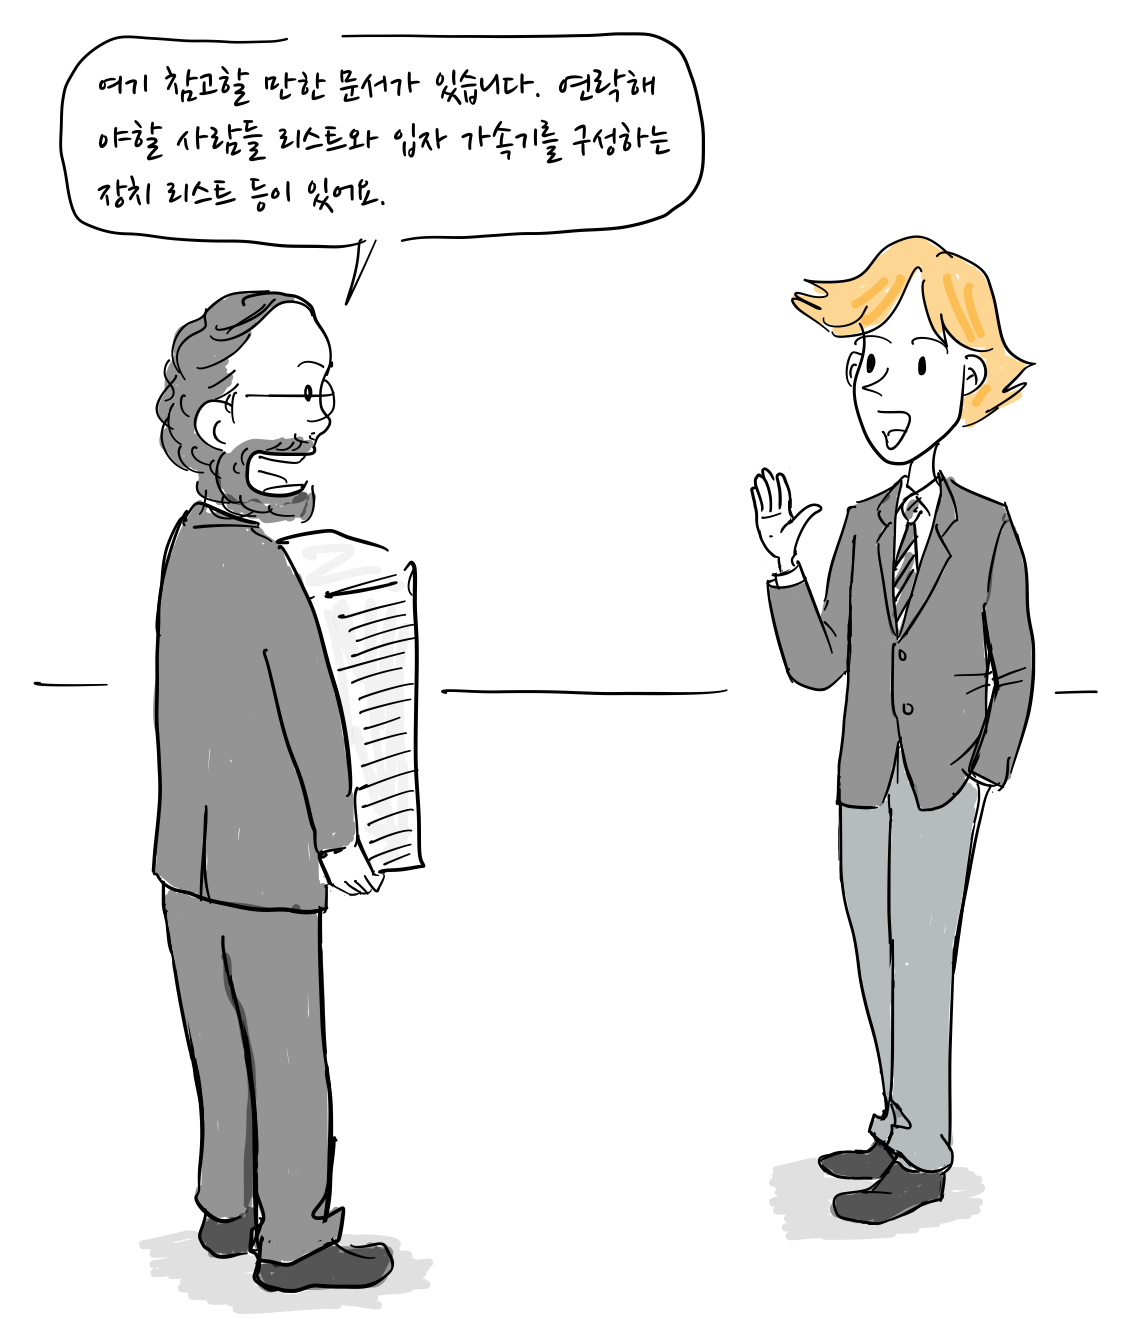 여기 참고할 만한 문서가 있습니다. 연락해
야할 사람들 리스트와 입자 가속기를 구성하는
장치 리스트 등이 있어요.